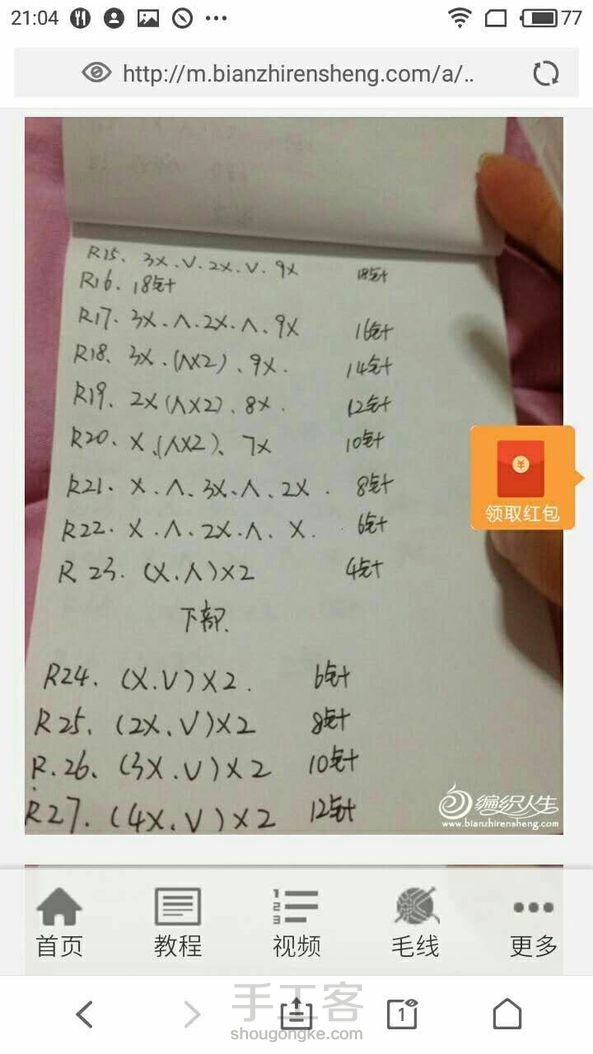 21:04
77
http://m.bianzhirensheng.com/a/..
R15、3X.V.2X.V.9X 18针
R16、18针
R17、3X.Λ.2X.Λ.9X 16针
R18、3X.(ΛX2)、9X. 14针
R19、2X(ΛX2)、8X. 12针
R20、X、(ΛX2)、7X 10针
R21. X.Λ.3X.Λ.2X. 8针
R22. X.Λ.2X.Λ.X. 6针
R 23. (X.Λ)X2 4针
下部.
R24. (X.V)X2. 6针
R25. (2X.V)X2 8针
R.26、(3X.V)X2 10针
R27. (4X.V)X2 12针
领取红包
编织人生
www.bianzhirensheng.com
首页 教程 视频 毛线 更多
1
手工客
shougongke.com